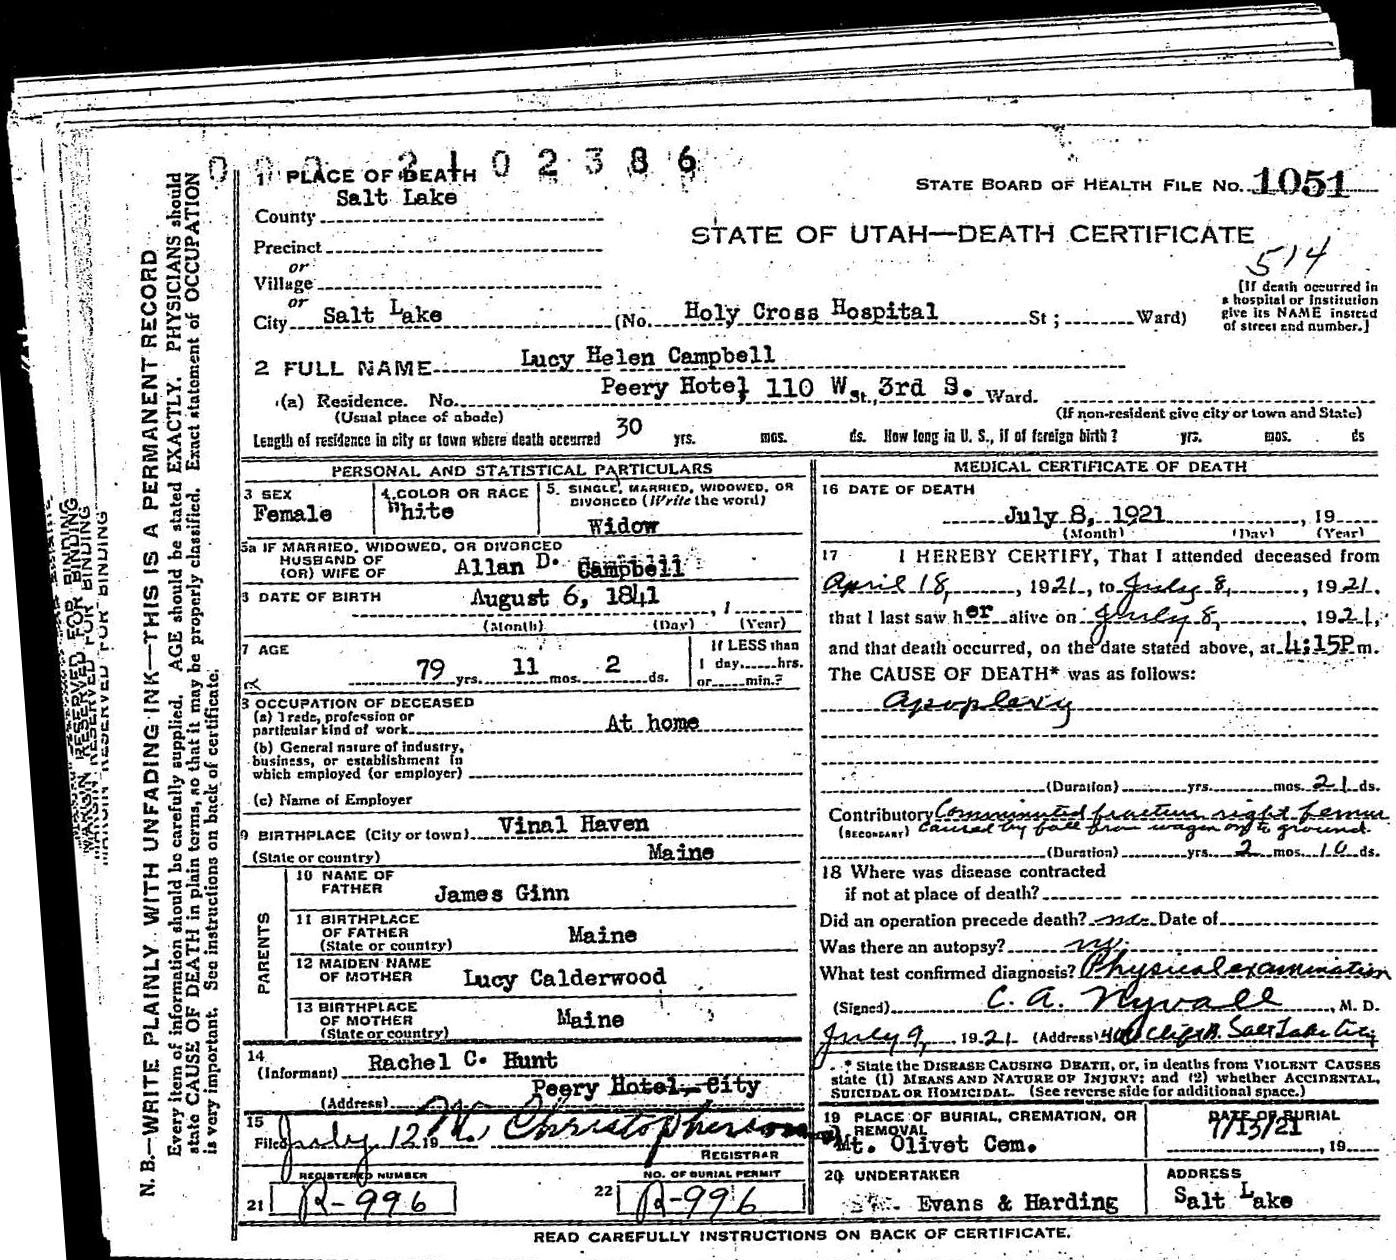 0 0 0 2 1 0 2 3 8 6
1 PLACE OF DEATH
STATE BOARD OF HEALTH FILE NO. 1051
County Salt Lake
STATE OF UTAH—DEATH CERTIFICATE
Precinct
514
or
Village
or
City Salt Lake (No. Holy Cross Hospital St ; Ward)
[If death occurred in
a hospital or institution
give its NAME instead
of street and number.]
2 FULL NAME Lucy Helen Campbell
(a) Residence. No. Peery Hotel, 110 W. St., 3rd S. Ward.
(Usual place of abode) (If non-resident give city or town and State)
Length of residence in city or town where death occurred 30 yrs. mos. ds. How long in U. S., if of foreign birth? yrs. mos. ds
PERSONAL AND STATISTICAL PARTICULARS
3 SEX
Female
4 COLOR OR RACE
White
5. SINGLE, MARRIED, WIDOWED, OR
DIVORCED (Write the word)
Widow
5a IF MARRIED, WIDOWED, OR DIVORCED
HUSBAND OF
(OR) WIFE OF Allan D. Campbell
DATE OF BIRTH August 6, 1841
(Month) (Day) (Year)
7 AGE
79 yrs. 11 mos. 2 ds.
If LESS than
1 day,......hrs.
or......min.?
8 OCCUPATION OF DECEASED
(a) Trade, profession or
particular kind of work At home
(b) General nature of industry,
business, or establishment in
which employed (or employer)
(c) Name of Employer
9 BIRTHPLACE (City or town) Vinal Haven
(State or country) Maine
PARENTS
10 NAME OF
FATHER James Ginn
11 BIRTHPLACE
OF FATHER
(State or country) Maine
12 MAIDEN NAME
OF MOTHER Lucy Calderwood
13 BIRTHPLACE
OF MOTHER
(State or country) Maine
14
(Informant) Rachel C. Hunt
(Address) Peery Hotel, City
15
Filed July 12 19 M. Christopherson
REGISTRAR
REGISTERED NUMBER
21 R-996
NO. OF BURIAL PERMIT
22 R-996
MEDICAL CERTIFICATE OF DEATH
16 DATE OF DEATH
July 8, 1921 , 19
(Month) (Day) (Year)
17 I HEREBY CERTIFY, That I attended deceased from
April 18, , 1921, to July 8, , 1921,
that I last saw her alive on July 8, , 1921,
and that death occurred, on the date stated above, at 4:15P m.
The CAUSE OF DEATH* was as follows:
Apoplexy
(Duration) yrs. mos. 21 ds.
Contributory Comminuted fracture right femur
(SECONDARY) caused by fall from wagon on to ground.
(Duration) yrs. 2 mos. 10 ds.
18 Where was disease contracted
if not at place of death?
Did an operation precede death? no Date of
Was there an autopsy? no
What test confirmed diagnosis? Physical examination
(Signed) C. A. Nyvall , M. D.
July 9, , 1921 (Address) Salt Lake City
* State the DISEASE CAUSING DEATH, or, in deaths from VIOLENT CAUSES
state (1) MEANS AND NATURE OF INJURY; and (2) whether ACCIDENTAL,
SUICIDAL OR HOMICIDAL. (See reverse side for additional space.)
19 PLACE OF BURIAL, CREMATION, OR
REMOVAL
Mt. Olivet Cem.
DATE OF BURIAL
7/13/21
, 19
20 UNDERTAKER
Evans & Harding
ADDRESS
Salt Lake
READ CAREFULLY INSTRUCTIONS ON BACK OF CERTIFICATE.
MARGIN RESERVED FOR BINDING
MARGIN RESERVED FOR BINDING
MARGIN RESERVED FOR BINDING
N. B.—WRITE PLAINLY WITH UNFADING INK—THIS IS A PERMANENT RECORD
Every item of information should be carefully supplied. AGE should be stated EXACTLY. PHYSICIANS should
state CAUSE OF DEATH in plain terms, so that it may be properly classified. Exact statement of OCCUPATION
is very important. See instructions on back of certificate.